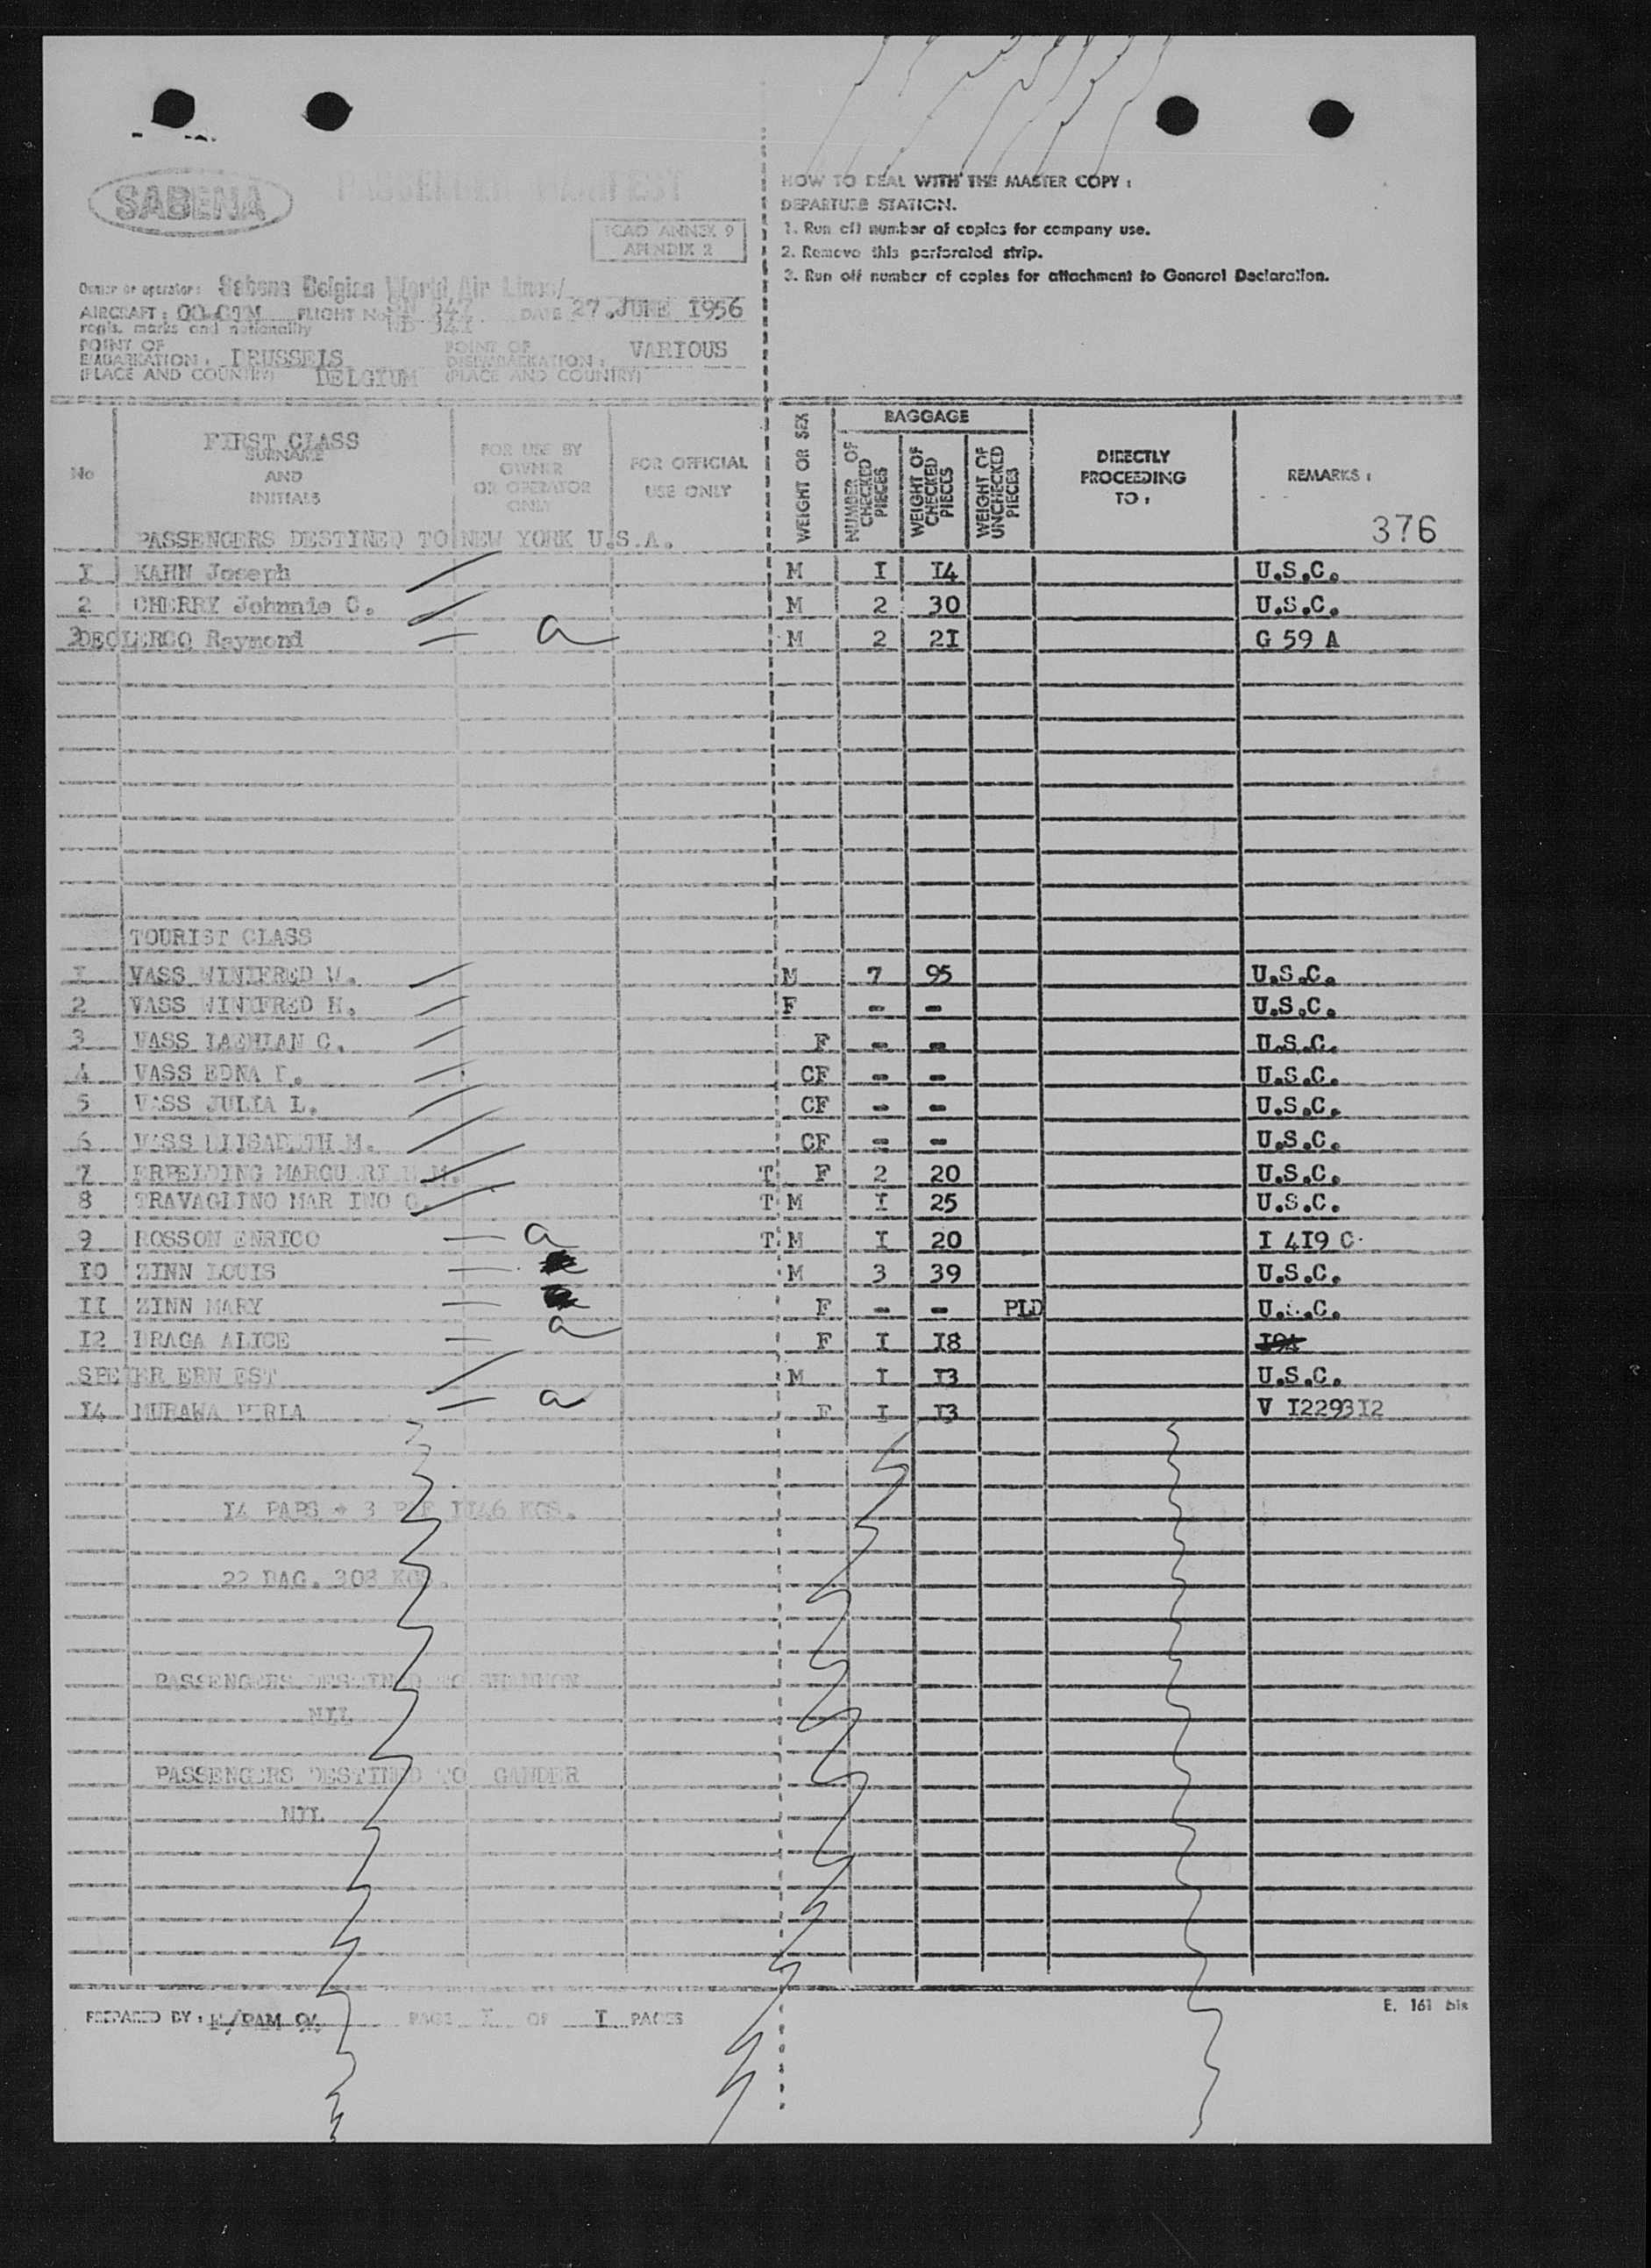 SABENA
PASSENGER MANIFEST
ICAO ANNEX 9
APENDIX 2
HOW TO DEAL WITH THE MASTER COPY :
DEPARTURE STATION.
1. Run off number of copies for company use.
2. Remove this perforated strip.
3. Run off number of copies for attachment to General Declaration.
Owner or operator : Sabena Belgian World Air Lines/
AIRCRAFT : FLIGHT No DATE 27.JUNE 1956
regis. marks and nationality
POINT OF EMBARKATION : BRUSSELS BELGIUM (PLACE AND COUNTRY)
POINT OF DISEMBARKATION : VARIOUS (PLACE AND COUNTRY)
No
FIRST CLASS
SURNAME AND INITIALS
FOR USE BY OWNER OR OPERATOR ONLY
FOR OFFICIAL USE ONLY
WEIGHT OR SEX
BAGGAGE
NUMBER OF CHECKED PIECES
WEIGHT OF CHECKED PIECES
WEIGHT OF UNCHECKED PIECES
DIRECTLY PROCEEDING TO :
REMARKS :
376
PASSENGERS DESTINED TO NEW YORK U.S.A.
I KAHN Joseph M I I4 U.S.C.
2 CHERRY Johnnie C. M 2 30 U.S.C.
3 DECLERCQ Raymond a M 2 2I G 59 A
TOURIST CLASS
I VASS WINIFRED W. M 7 95 U.S.C.
2 VASS WINIFRED H. F - - U.S.C.
3 VASS C. F - - U.S.C.
4 VASS EDNA CF - - U.S.C.
5 VASS JULIA L. CF - - U.S.C.
6 VASS ELISABETH M. CF - - U.S.C.
7 M. T F 2 20 U.S.C.
8 TRAVAGLINO MAR INO G. T M I 25 U.S.C.
9 ROSSON ENRICO a T M I 20 I 4I9 C
IO ZINN LOUIS M 3 39 U.S.C.
II ZINN MARY F - - PLD U.S.C.
I2 BRAGA ALICE a F I I8
SPEIER ERN EST M I I3 U.S.C.
I4 MURAWA a F I I3 V I2293I2
I4 PAPS + 3 II46 KGS.
22 BAG. 308 KGS.
PASSENGERS DESTINED TO SHANNON
NIL
PASSENGERS DESTINED TO GANDER
NIL
PREPARED BY : PAGE I OF I PAGES
E. 161 bis